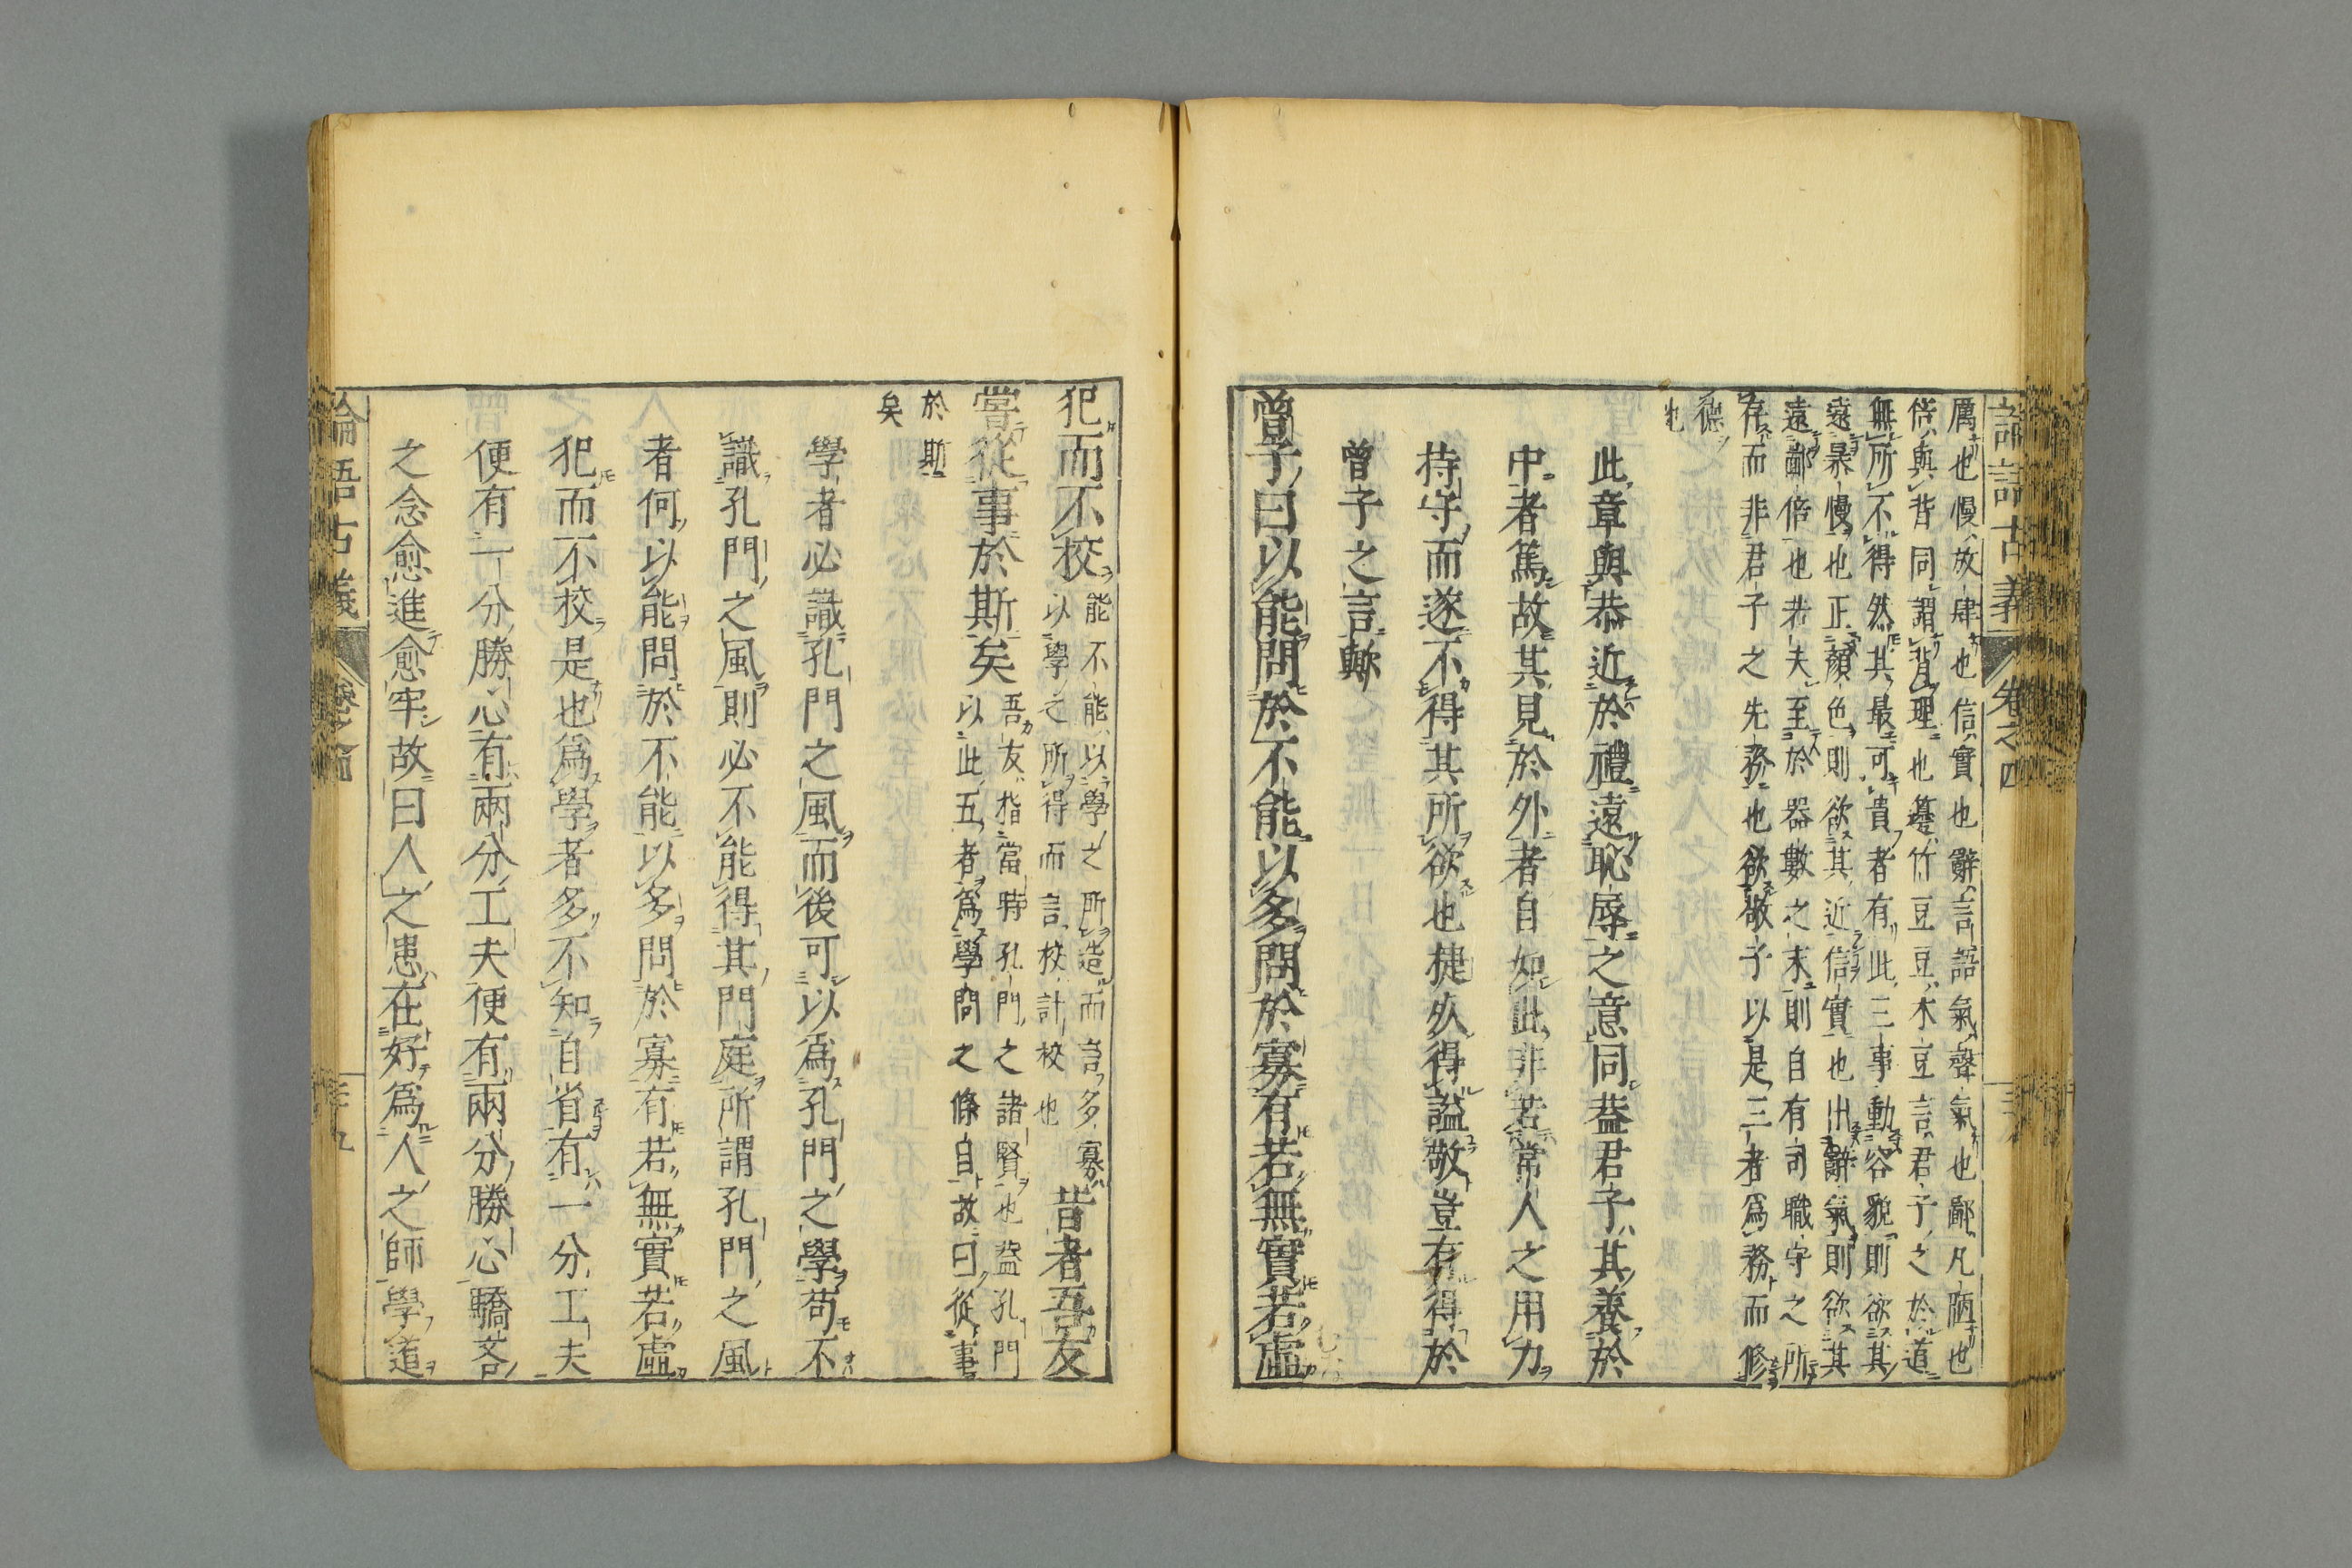 厲也慢放肆也信實也辭言語氣聲氣也鄙凡陋也
倍與背同謂背理也籩竹豆豆木豆言君子之於道
無所不得然其最可貴者有此三事動容貌則欲其
遠暴慢也正顏色則欲其近信實也出辭氣則欲其
遠鄙倍也若夫至於器數之末則自有司職守之所
存而非君子之先務也欲敬子以是三者爲務而修
也
此章與恭近於禮遠恥辱之意同蓋君子其養於
中者篤故其見於外者自如此非若常人之用力
持守而遂不得其所欲也揵奴得謚敬豈有得於
曾子之言歟
曾子曰以能問於不能以多問於寡有若無實若虛
犯而不校
能不能以學之所造而言多寡
以學之所得而言校計校也
昔者吾友
嘗從事於斯矣
吾友指當時孔門之諸賢也蓋孔門
以此五者爲學問之條目故曰從事
於斯
矣
學者必識孔門之風而後可以爲孔門之學苟不
識孔門之風則必不能得其門庭所謂孔門之風
者何以能問於不能以多問於寡有若無實若虛
犯而不校是也爲學者多不知自省有一分工夫
便有一分勝心有兩分工夫便有兩分勝心驕吝
之念愈進愈牢故曰人之患在好爲人之師學道
語古義
卷之四
論語古義